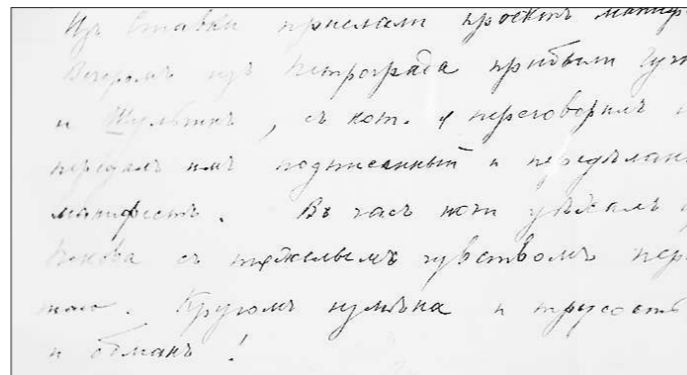 Изъ Ставки прислали проектъ маниф
Вечеромъ изъ Петрограда прибыли Гуч
и Шульгинъ, съ кот. я переговорилъ и
передалъ имъ подписанный и передѣлан
манифестъ. Въ часъ ночи уѣхалъ
Пскова съ тяжелымъ чувствомъ пер
таго. Кругомъ измѣна и трусость
и обманъ!